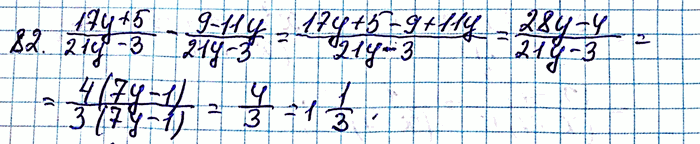 82. \frac{17y+5}{21y-3} - \frac{9-11y}{21y-3} = \frac{17y+5-9+11y}{21y-3} = \frac{28y-4}{21y-3} =
= \frac{4(7y-1)}{3(7y-1)} = \frac{4}{3} = 1\frac{1}{3}.